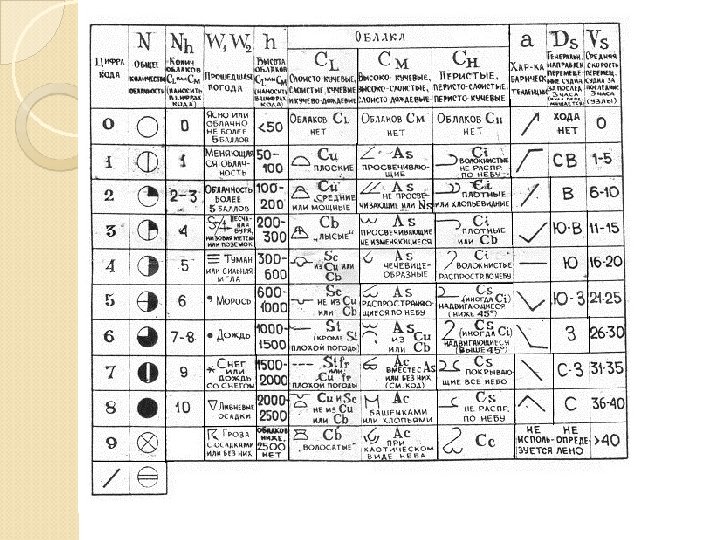 ОБЛАКА
ЦИФРА КОДА
N
ОБЩЕЕ КОЛИЧЕСТВО ОБЛАЧНОСТИ
Nh
КОЛИЧ. ОБЛАКОВ CL ИЛИ CM
(НАНОСИТЬ В ЦИФРАХ КОДА)
W1 W2
ПРОШЕДШАЯ ПОГОДА
h
ВЫСОТА ОБЛАКОВ CL ИЛИ CM
(НАНОСИТЬ В ЦИФРАХ КОДА)
CL
СЛОИСТО КУЧЕВЫЕ, СЛОИСТЫЕ, КУЧЕВЫЕ И КУЧЕВО-ДОЖДЕВЫЕ
CM
ВЫСОКО-КУЧЕВЫЕ, ВЫСОКО-СЛОИСТЫЕ, СЛОИСТО ДОЖДЕВЫЕ
CH
ПЕРИСТЫЕ, ПЕРИСТО-СЛОИСТЫЕ, ПЕРИСТО-КУЧЕВЫЕ
a
ХАР-КА БАРИЧЕСК ТЕНДЕНЦИИ
Ds
Vs
0 0 ЯСНО ИЛИ ОБЛАЧНО НЕ БОЛЕЕ 5 БАЛЛОВ <50 ОБЛАКОВ CL НЕТ ОБЛАКОВ CM НЕТ ОБЛАКОВ CH НЕТ ХОДА НЕТ 0
1 1 МЕНЯЮЩАЯСЯ ОБЛАЧНОСТЬ 50-100 Cu ПЛОСКИЕ As ПРОСВЕЧИВАЮЩИЕ Ci ВОЛОКНИСТЫЕ НЕ РАСПР. ПО НЕБУ СВ 1-5
2 2-3 ОБЛАЧНОСТЬ БОЛЕЕ 5 БАЛЛОВ 100-200 Cu СРЕДНИЕ ИЛИ МОЩНЫЕ As НЕ ПРОСВЕЧИВАЮЩИЕ ИЛИ Ns Ci ПЛОТНЫЕ ИЛИ ХЛОПЬЕВИДНЫЕ В 6-10
3 4 200-300 Cb „ЛЫСЫЕ" As ПРОСВЕЧИВАЮЩИЕ НЕ ИЗМЕНЯЮЩИЕСЯ Ci ПЛОТНЫЕ ИЛИ Cb Ю-В 11-15
4 5 ТУМАН ИЛИ СИЛЬНАЯ МГЛА 300-600 Sc ИЗ Cu ИЛИ Cb As ЧЕЧЕВИЦЕ-ОБРАЗНЫЕ Ci ВОЛОКНИСТЫЕ РАСПРОСТР. ПО НЕБУ Ю 16-20
5 6 МОРОСЬ 600-1000 Sc НЕ ИЗ Cu ИЛИ Cb As РАСПРОСТРАНЯЮЩИЕСЯ ПО НЕБУ Cs (ИНОГДА Ci) НАДВИГАЮЩИЕСЯ (НИЖЕ 45°) Ю-З 21-25
6 7-8 ДОЖДЬ 1000-1500 St (КРОМЕ St ПЛОХОЙ ПОГОДЫ) As ИЗ Cu ИЛИ Cb Cs (ИНОГДА Ci) НАДВИГАЮЩИЕСЯ (ВЫШЕ 45°) З 26-30
7 9 СНЕГ ИЛИ ДОЖДЬ СО СНЕГОМ 1500-2000 St fr ИЛИ Cu fr ПЛОХОЙ ПОГОДЫ Ac ВМЕСТЕ С As ИЛИ БЕЗ НИХ (СМ. КОД) Cs ПОКРЫВАЮЩИЕ ВСЕ НЕБО С-З 31-35
8 10 ЛИВНЕВЫЕ ОСАДКИ 2000-2500 Cu И Sc НЕ ИЗ Cu ИЛИ Cb Ac БАШЕНКАМИ ИЛИ ХЛОПЬЯМИ Cs НЕ РАСПР. ПО НЕБУ С 36-40
9 ГРОЗА С ОСАДКАМИ ИЛИ БЕЗ НИХ ОБЛАКОВ НИЖЕ 2500 НЕТ Cb „ВОЛОСАТЫЕ" Ac ПРИ ХАОТИЧЕСКОМ ВИДЕ НЕБА Cc НЕ ИСПОЛЬЗУЕТСЯ НЕ ОПРЕДЕЛЕНО >40
/